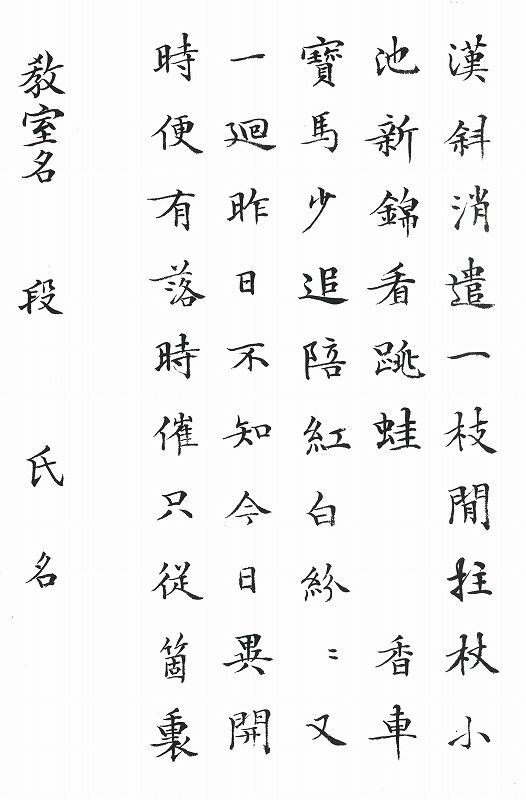 漢斜消遣一枝閒拄杖小
池新錦看跳蛙　香車
寶馬少追陪紅白紛〻又
一迴昨日不知今日異開
時便有落時催只從箇裏
教室名　段　氏名